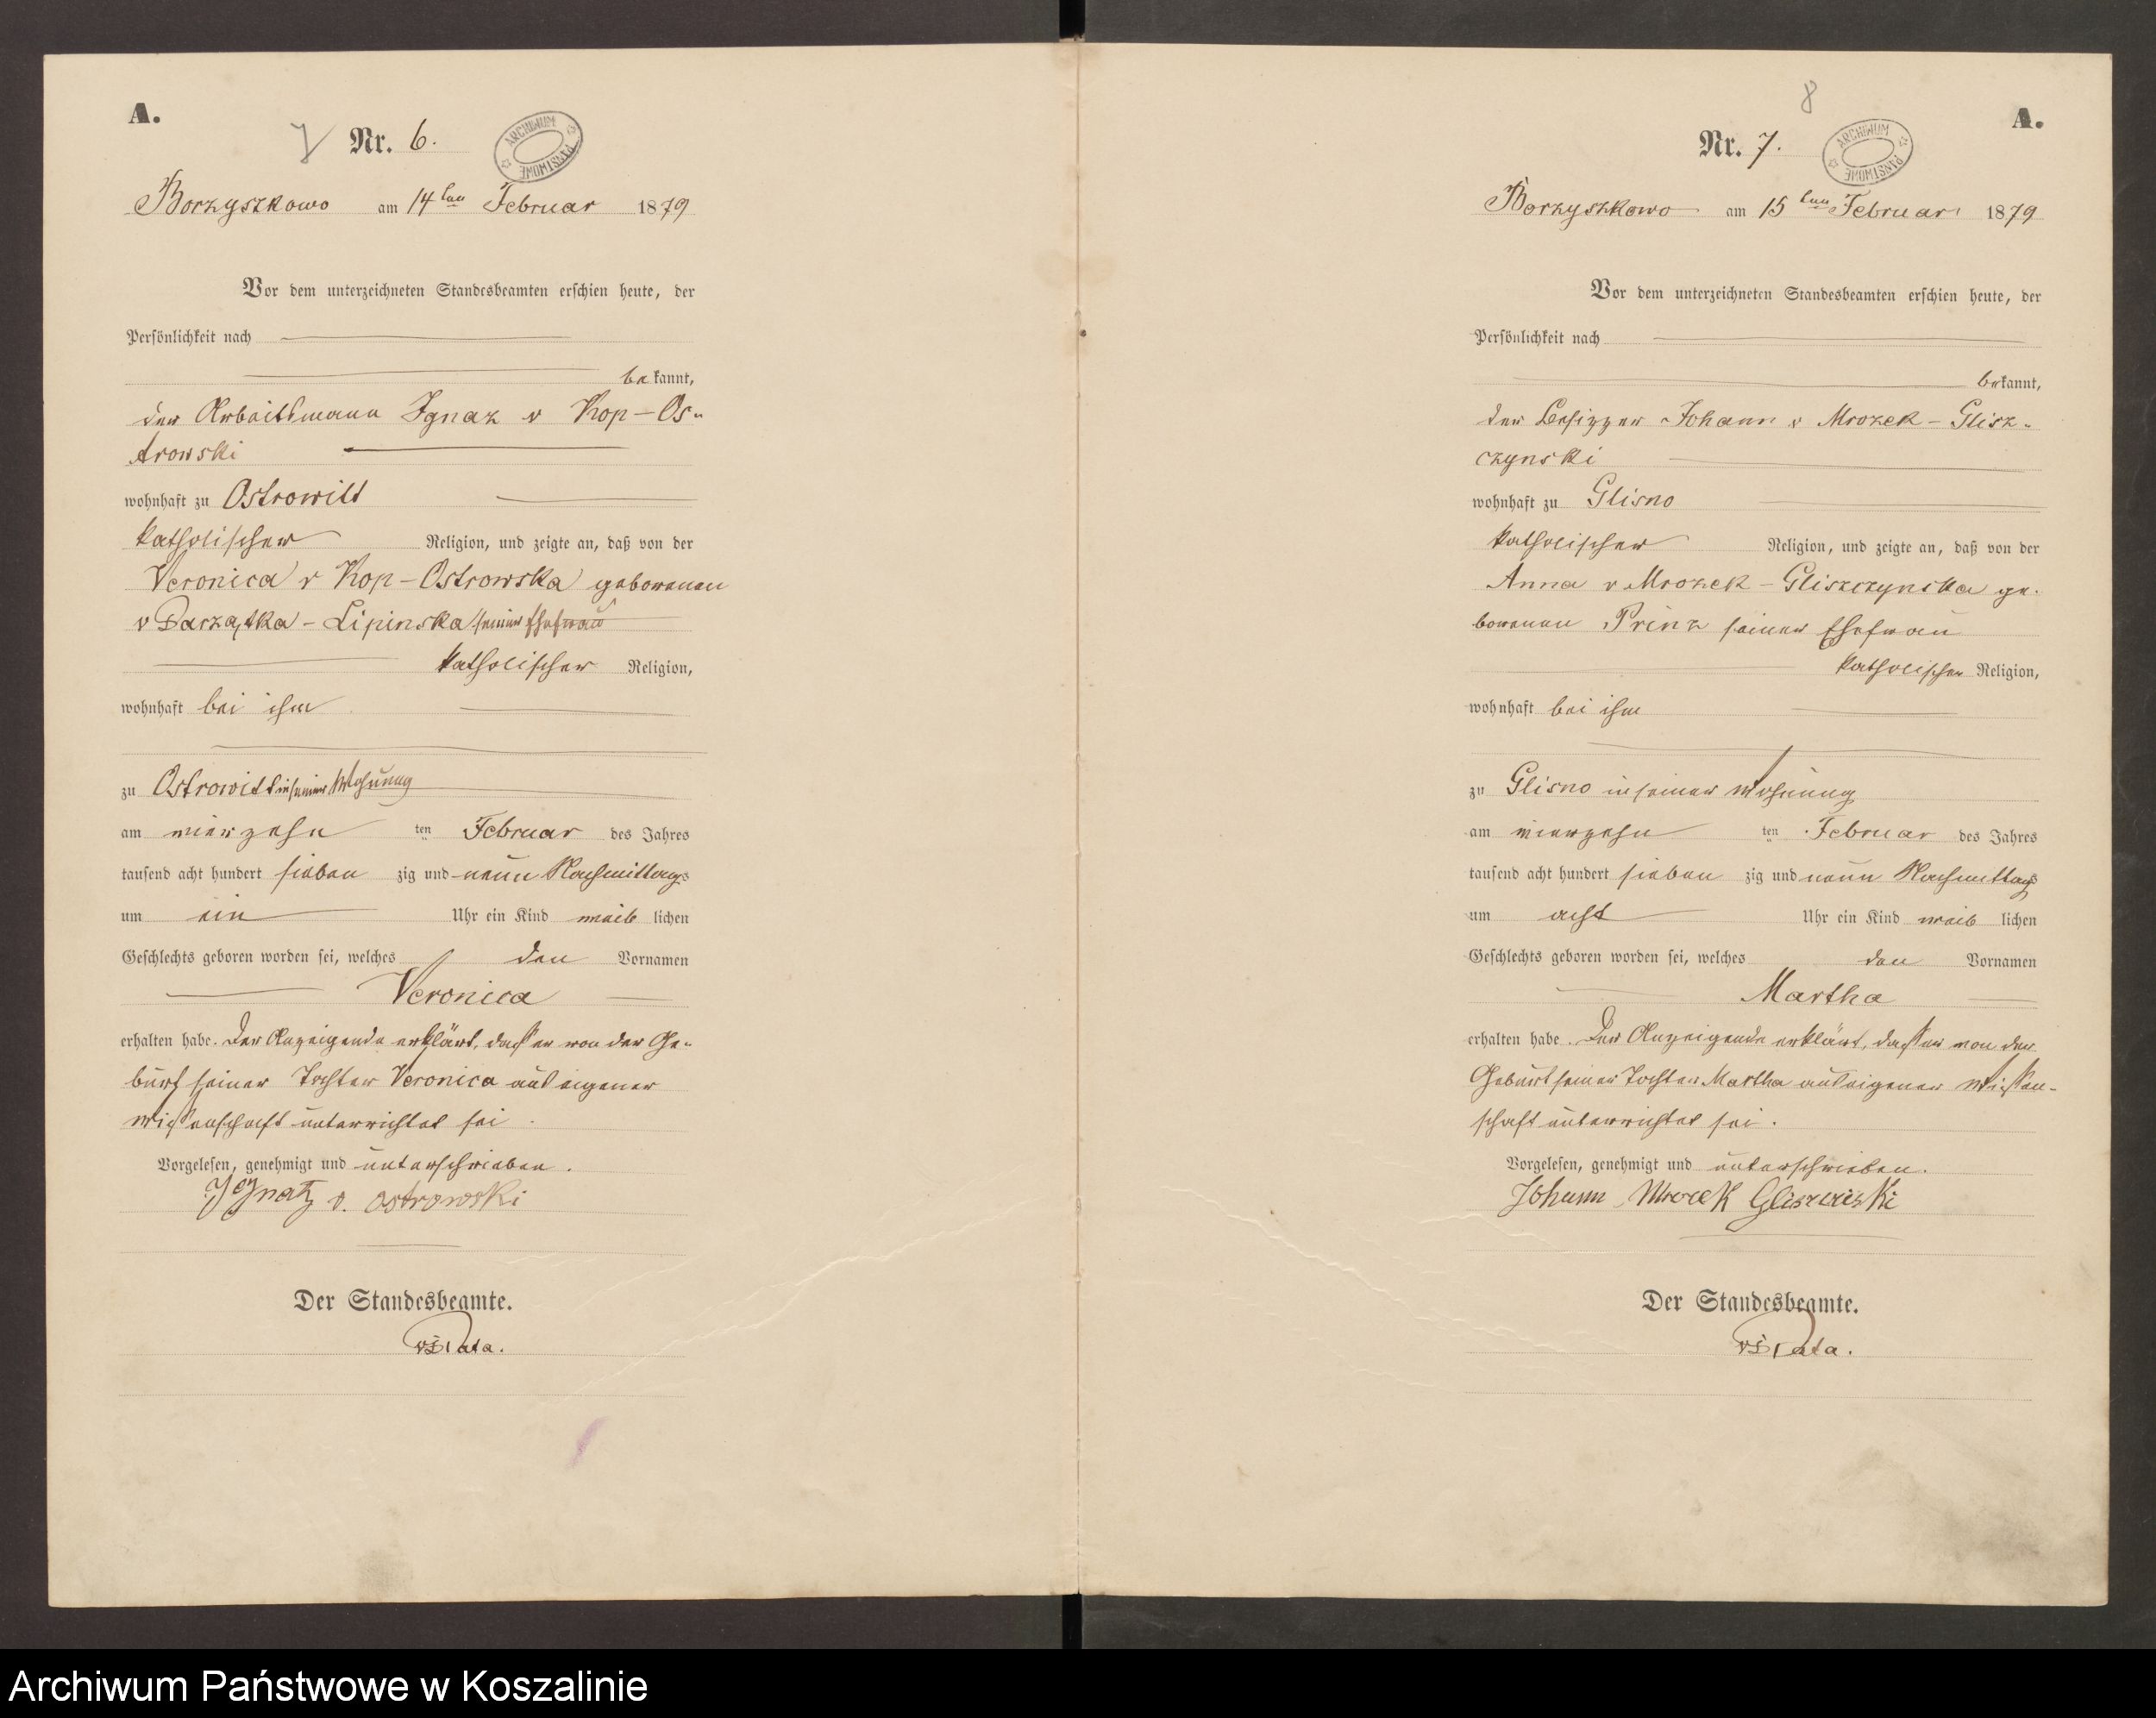 A.
7 Nr. 6.
ARCHIWUM PAŃSTWOWE
Borzyszkowo am 14ten Februar 1879
Vor dem unterzeichneten Standesbeamten erschien heute, der
Persönlichkeit nach
bekannt,
der Arbeitsmann Ignaz v Kop-Os-
trowski
wohnhaft zu Ostrowitt
katholischer Religion, und zeigte an, daß von der
Veronica v Kop-Ostrowska geborenen
v Parzątka-Lipinska seiner Ehefrau
katholischer Religion,
wohnhaft bei ihm
zu Ostrowitt in seiner Wohnung
am vierzehn ten Februar des Jahres
tausend acht hundert sieben zig und neun Nachmittags
um ein Uhr ein Kind weib lichen
Geschlechts geboren worden sei, welches den Vornamen
Veronica
erhalten habe. Der Anzeigende erklärt, daß er von der Ge-
burt seiner Tochter Veronica aus eigener
Wissenschaft unterrichtet sei.
Vorgelesen, genehmigt und unterschrieben.
Ignatz v. Ostrowski
Der Standesbeamte.
8
A.
Nr. 7.
ARCHIWUM PAŃSTWOWE
Borzyszkowo am 15ten Februar 1879
Vor dem unterzeichneten Standesbeamten erschien heute, der
Persönlichkeit nach
bekannt,
der Besitzer Johann v Mrozek-Glisz-
czynski
wohnhaft zu Glisno
katholischer Religion, und zeigte an, daß von der
Anna v Mrozek-Gliszczynska ge-
borenen Prinz seiner Ehefrau
katholischer Religion,
wohnhaft bei ihm
zu Glisno in seiner Wohnung
am vierzehn ten Februar des Jahres
tausend acht hundert sieben zig und neun Nachmittags
um acht Uhr ein Kind weib lichen
Geschlechts geboren worden sei, welches den Vornamen
Martha
erhalten habe. Der Anzeigende erklärt, daß er von der
Geburt seiner Tochter Martha aus eigener Wissen-
schaft unterrichtet sei.
Vorgelesen, genehmigt und unterschrieben.
Johann Mrozek
Der Standesbeamte.
Archiwum Państwowe w Koszalinie